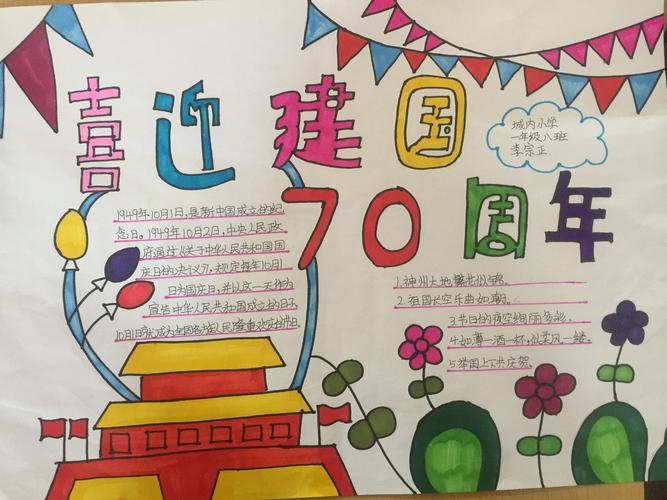 喜迎建国
70周年
城内小学
一年级八班
李宗正
1949年10月1日,是新中国成立的纪
念日。1949年10月2日,中央人民政
府通过《关于中华人民共和国国
庆日的决议》,规定每年10月1
日为国庆日,并以这一天作为
宣告中华人民共和国成立的日子。
10月1日就成为全国各族人民隆重欢庆的节日。
1.神州大地繁花似锦,
2.祖国长空乐曲如潮。
3.节日的夜空绚丽多彩,
4.如薄一酒一杯,似柔风一缕。
5.举国上下共庆贺。